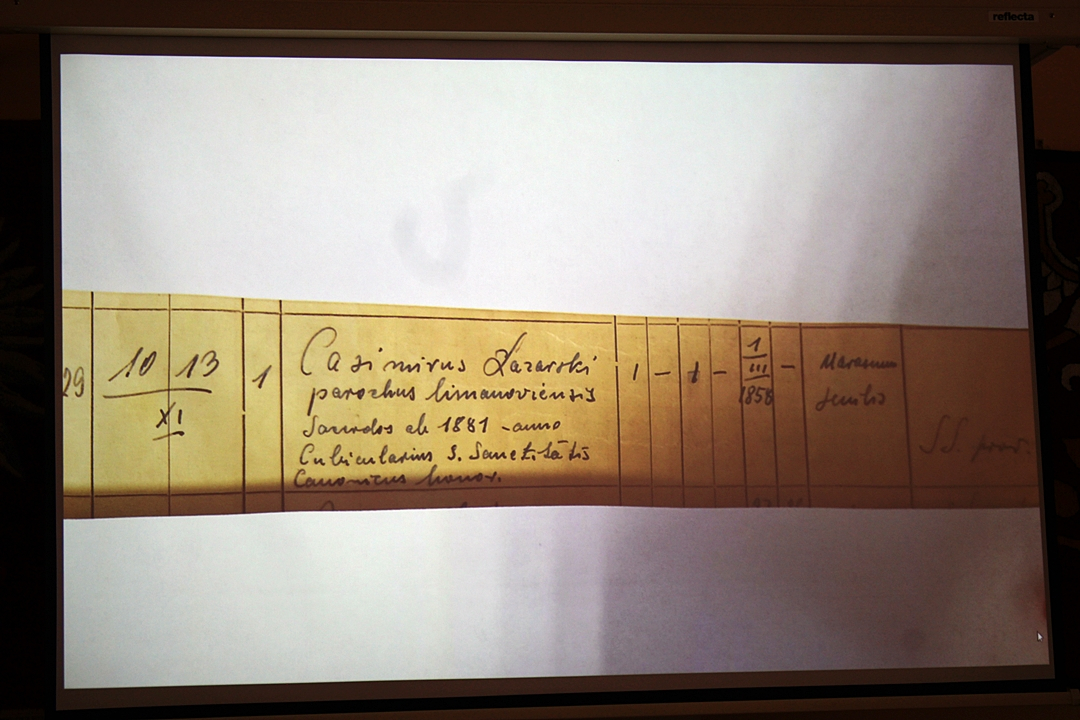 reflecta
29 10 13 XI 1 Casimirus Łazarski 1 - 1 - 1 III 1858 - Marasmus
parochus limanoviensis senilis
Sacerdos ab 1881 -anno
Cubicularius S. Sanctitatis
Canonicus honor.
SS. prov.